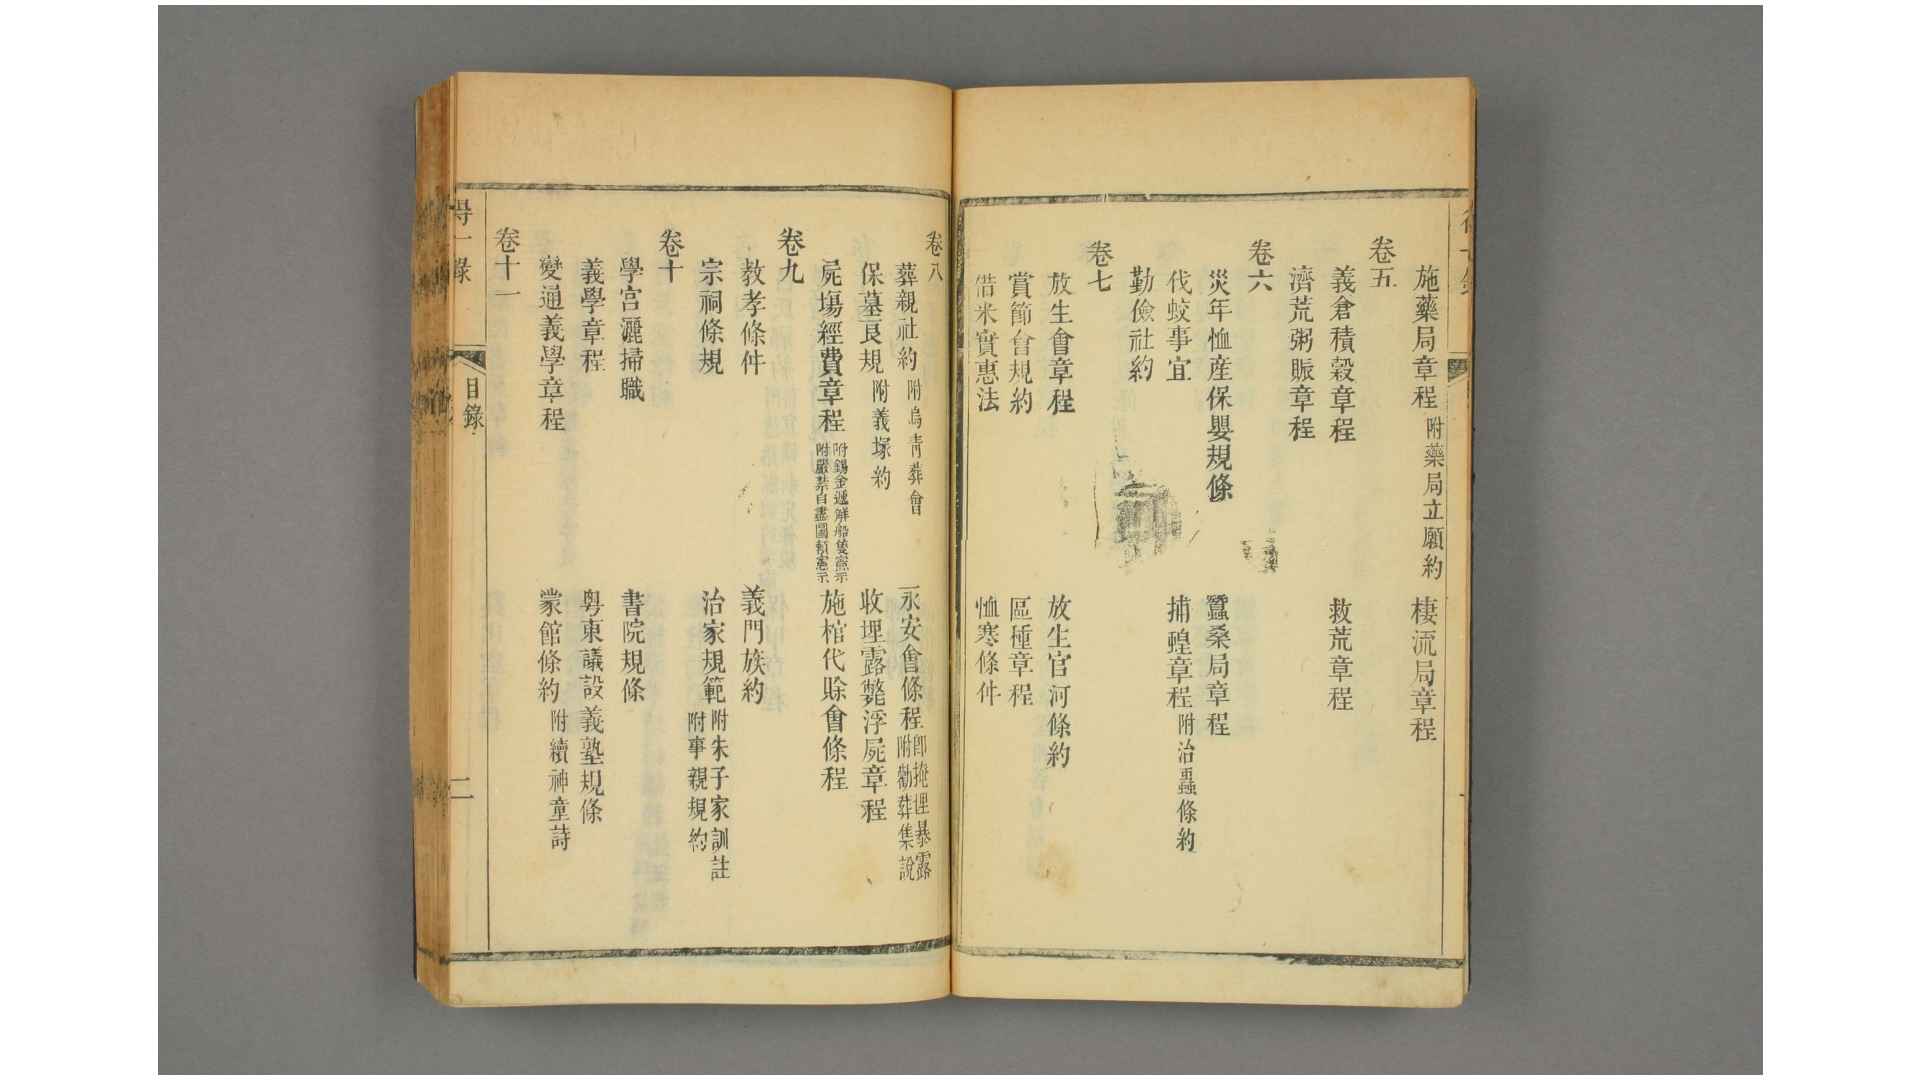 施藥局章程 附藥局立願約 棲流局章程
卷五
義倉積穀章程 救荒章程
濟荒粥賑章程
卷六
災年恤産保嬰規條 蠶桑局章程
伐蛟事宜 捕蝗章程 附治蟊條約
勤儉社約
卷七
放生會章程 放生官河條約
賞節會規約 區種章程
借米實惠法 恤寒條件
卷八
葬親社約 附烏青葬會 永安會條程 卽掩埋暴露 附勸葬集說
保墓良規 附義塚約 收埋露斃浮屍章程
屍塲經費章程 附錫金遞解船隻憲示 附嚴禁自盡圖賴憲示 施棺代賒會條程
卷九
教孝條件 義門族約
宗祠條規 治家規範 附朱子家訓註 附事親規約
卷十
學宮灑掃職 書院規條
義學章程 粤東議設義塾規條
變通義學章程 蒙館條約 附續神童詩
卷十一
得一錄 目錄 二